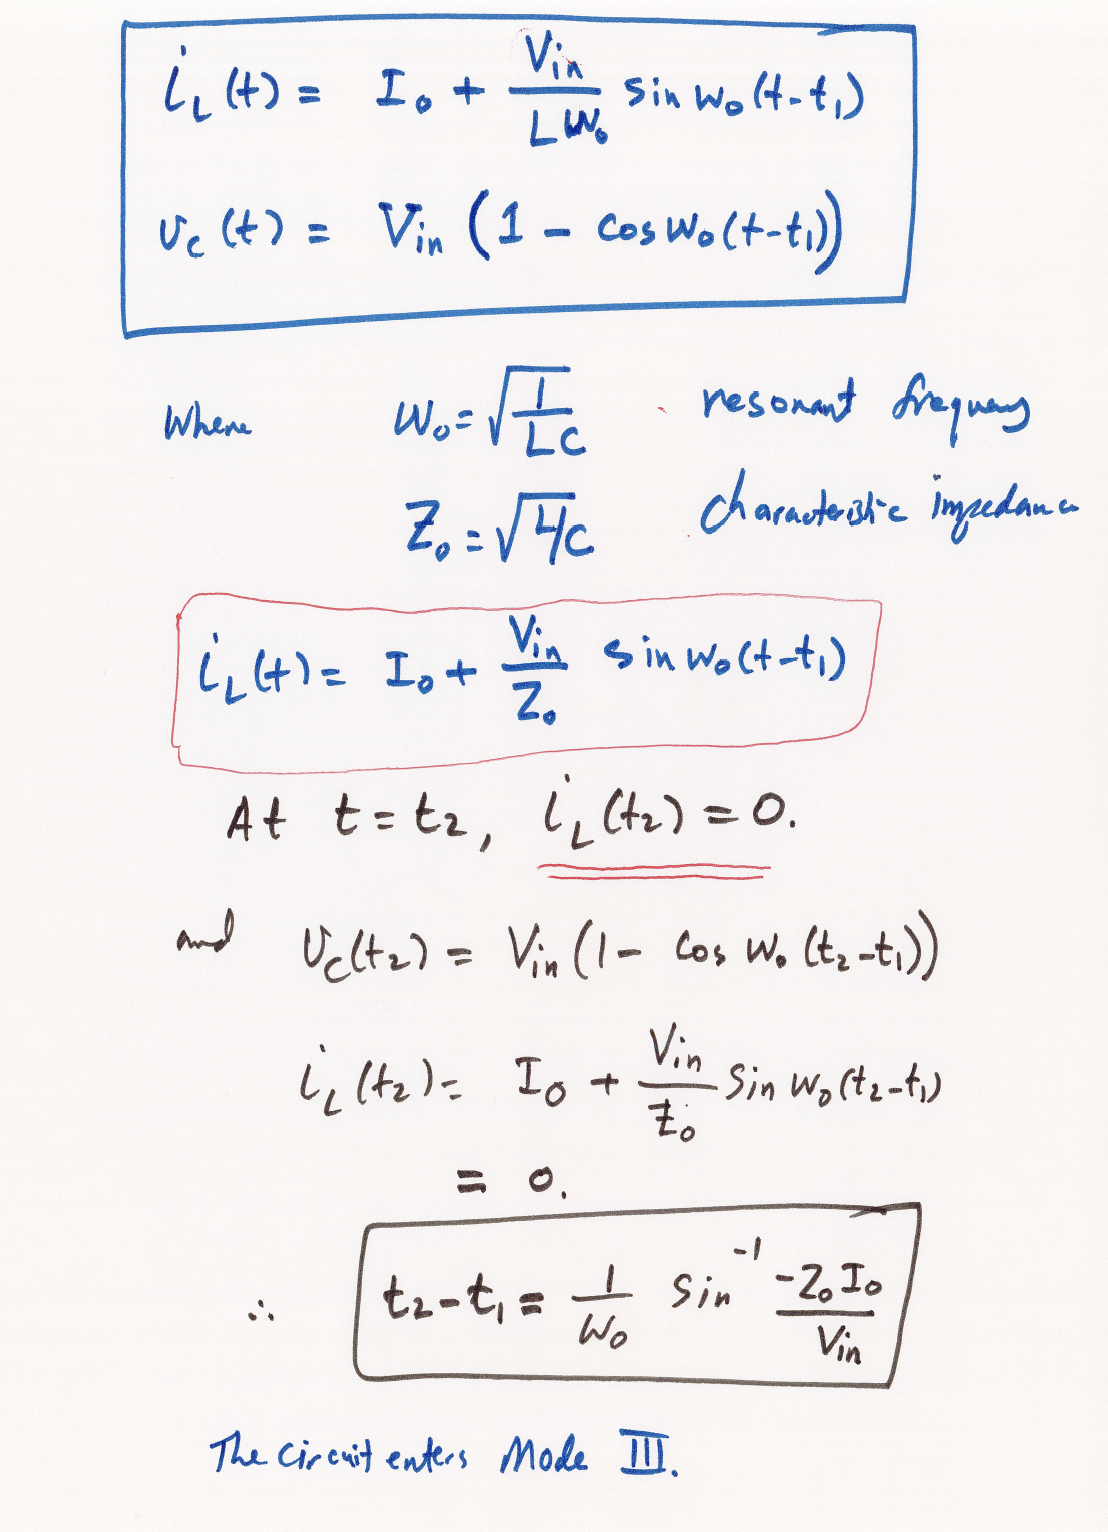 i_L(t) = I_0 + V_in / (L ω_0) sin ω_0(t-t_1)
v_c(t) = V_in (1 - cos ω_0(t-t_1))
Where ω_0 = √(1/LC) resonant frequency
Z_0 = √(L/C) characteristic impedance
i_L(t) = I_0 + V_in / Z_0 sin ω_0(t-t_1)
At t = t_2, i_L(t_2) = 0.
and v_c(t_2) = V_in (1 - cos ω_0(t_2-t_1))
i_L(t_2) = I_0 + V_in / Z_0 sin ω_0(t_2-t_1)
= 0.
∴ t_2-t_1 = 1/ω_0 sin^-1 -Z_0 I_0 / V_in
The circuit enters Mode III.